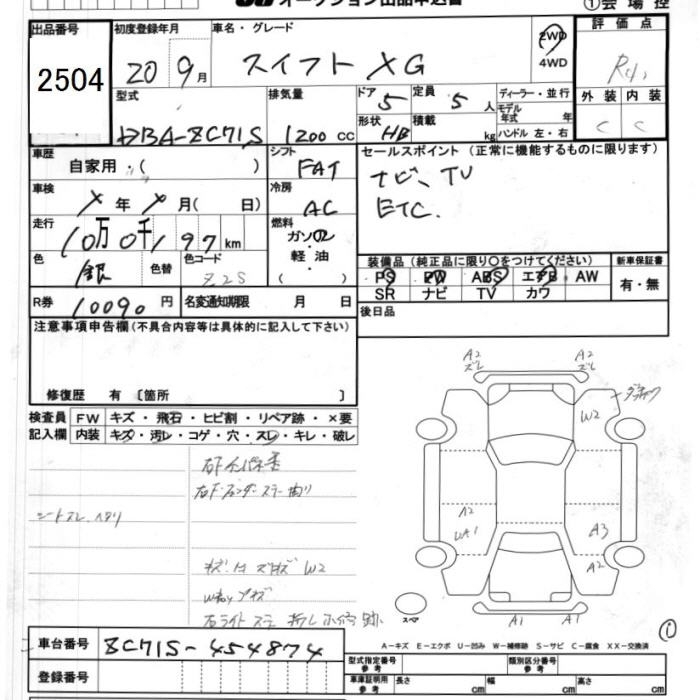 オークション出品申込書 ①会場控
出品番号 初度登録年月 車名・グレード 評価点
2504 20 9月 スイフト XG 2WD
4WD
型式 排気量 ドア 5 定員 5 人 ディーラー・並行 外装 内装
DBA-ZC71S 1200 cc 形状 HB 積載 kg モデル年式 年 C C
ハンドル 左・右
車歴 自家用・( ) シフト FAT セールスポイント (正常に機能するものに限ります)
車検 年 月( 日) 冷房 AC ナビ、TV
ETC.
走行 10万0千197km 燃料 ガソリン・軽油・( )
色 銀 色替 色コード Z2S 装備品 (純正品に限り○をつけてください) 新車保証書
PS PW ABS エアB AW 有・無
SR ナビ TV カワ
R券 10090円 名変通知期限 月 日 後日品
注意事項申告欄(不具合内容等は具体的に記入して下さい)
修復歴 有 [箇所 ]
検査員 FW キズ・飛石・ヒビ割・リペア跡・×要
記入欄 内装 キズ・汚レ・コゲ・穴・スレ・キレ・破レ
シートスレ.ヘタリ
W2
A2
ズレ
A2
ズレ
W2
A2
UA1
A3
A2
A1 A1
スペア
①
車台番号 ZC71S-454874 A-キズ E-エクボ U-凹み W-補修跡 S-サビ C-腐食 XX-交換済
型式指定番号 参考 類別区分番号 参考
登録番号 車庫証明用 参考 長さ cm 幅 cm 高さ cm